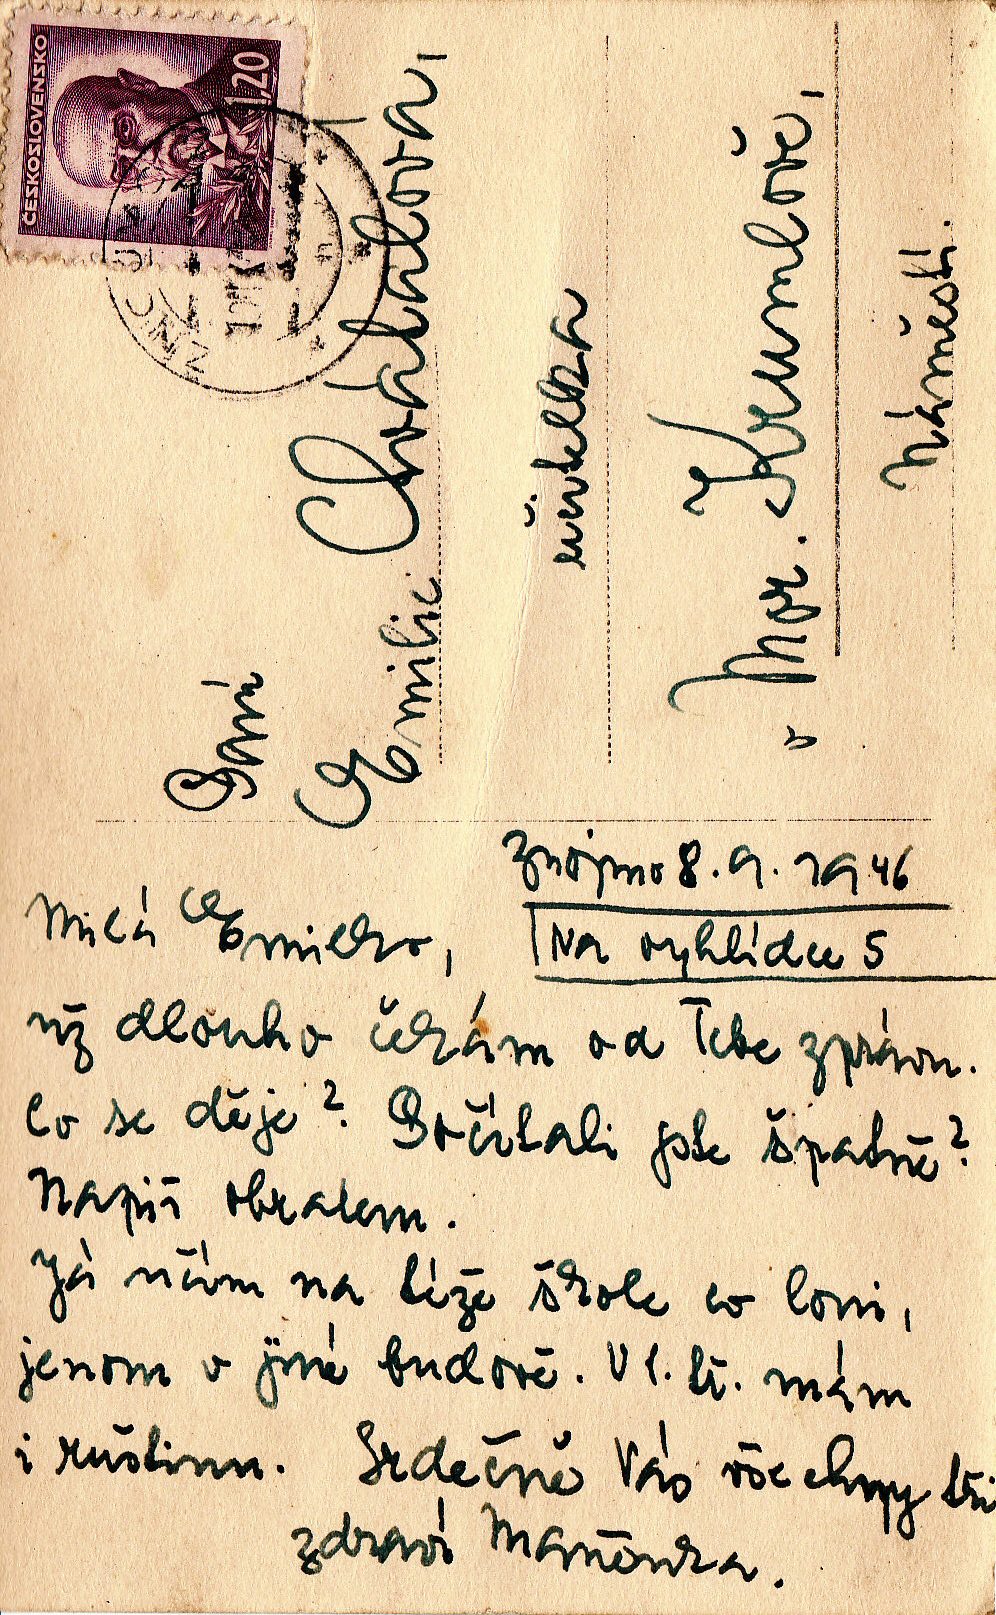 ČESKOSLOVENSKO
1,20
Paní
Emilie Chvátalová,
učitelka
v Mor. Krumlově,
Náměstí.
Znojmo 8. 9. 1946
Na vyhlídce 5
Milá Emilko,
už dlouho čekám od Tebe zprávu.
Co se děje? Počítali jste špatně?
Napiš obratem.
Já učím na téže škole co loni,
jenom v jiné budově. V 1. tř. mám
i ruštinu. Srdečně Vás všechny tři
zdraví Mařenka.